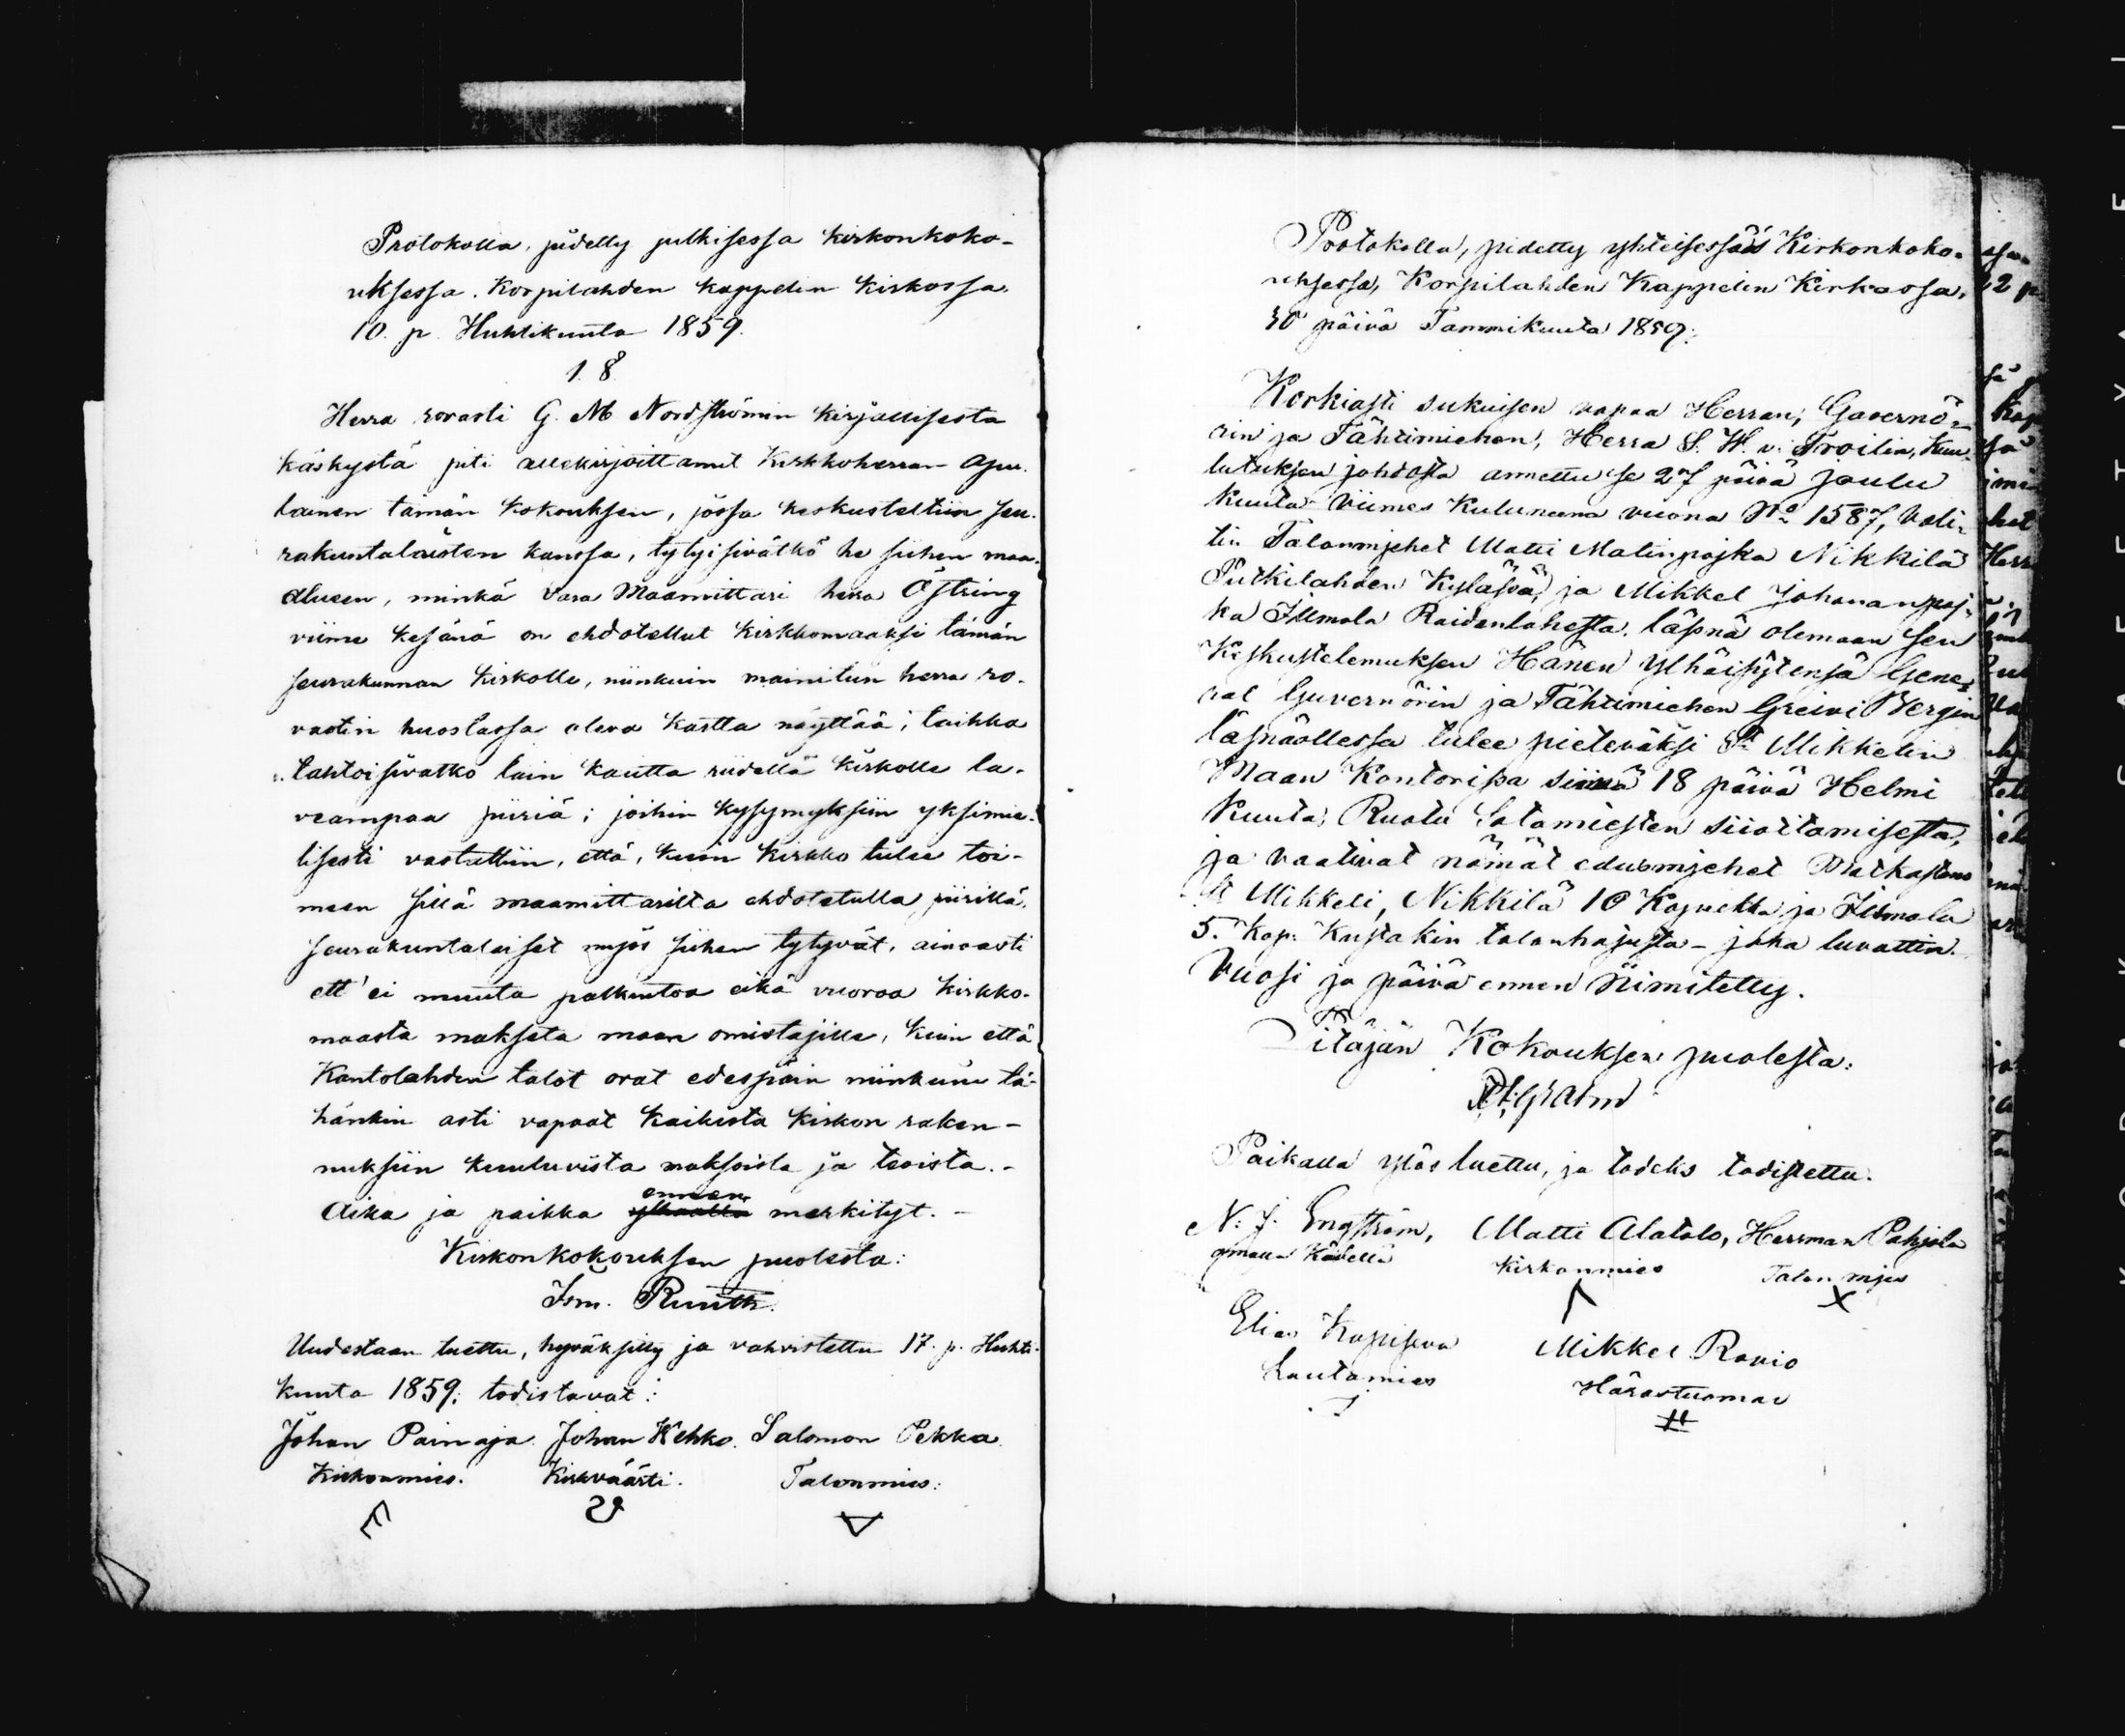 Protokolla, pidetty julkisessa kirkonkoko-
uksessa Korpilahden kappelin kirkossa
10. p. Huhtikuuta 1859.
1. §
Herra rovasti G. M Nordströmin kirjallisesta
käskystä piti allekirjoittanut Kirkkoherran apu-
lainen tämän kokouksen, jossa keskusteltiin seu-
rakuntalaisten kanssa, tytyisivätkö he siihen maa-
alueen, minkä Vara Maamittari herra Östring
viime kesänä on ehdotellut kirkkomaaksi tämän
seurakunnan kirkolle, niinkuin mainitun herra ro-
vastin huostassa oleva kartta näyttää; taikka
tahtoisivatko lain kautta riidellä kirkolle la-
veampaa piiriä; joihin kysymyksiin yksimie-
lisesti vastattiin, että, kuin kirkko tulee toi-
meen sillä maamittarilta ehdotetulla piirillä,
seurakuntalaiset myös siihen tytyvät, ainoasti
ett' ei muuta palkintoa eikä vuoroa kirkko-
maasta makseta maan omistajille, kuin että
Kantolahden talot ovat edespäin niinkuin tä-
hänkin asti vapaat kaikista kirkon raken-
nuksiin kuuluvista maksoista ja teoista.-
Aika ja paikka ylhaalla ennen merkityt.-
Kirkonkokouksen puolesta:
Ism. Ruuth.
Uudestaan luettu, hyväksitty ja vahvistettu 17. p. Huhti-
kuuta 1859; todistavat:
Johan Painaja. Johan Kehko. Salomon Pekka
Kirkonmies. Kirkväärti. Talonmies:
Protokolla, pidetty yhteisessä Kirkonkoko-
uksessa, Korpilahden Kappelin Kirkossa,
30 päivä Tammikuuta 1859.
Korkiasti sukuisen vapaa Herran, Guvernö-
rin ja Tähtimiehen, Herra S. W. v. Troilin, Kuu-
lutuksen johdosta annettu se 27 päivä Joulu
kuuta viimes kuluneena vuona No 1587, vali-
tin Talonmjehet Matti Matinpojka Nikkilä
Putkilahden Kylässä, ja Mikkel Johananpoj-
ka Ilmola Raidenlahesta, läsnä olemaan sen
Keskustelemuksen Hänen ylhäisytensä Gene-
ral Guvernörin ja Tähtimiehen Greivi Bergin
läsnäollessa tulee pieteväksi St Mikkelin
Maan Kontorissa siinä 18 päivä Helmi
kuuta, Ruotu Sotamiesten siioittamisesta,
ja vaativat nämät edusmjehet Matkastans
St Mikkeli, Nikkilä 10 Kopeekka ja Ilmola
5. Kop: Kustakin talonhajusta - joka luvattin.
Vuosi ja päivä ennen Nimitetty.
Pitäjän Kokouksen puolesta:
Paikalla ylös luettu, ja todeks todistettu.
N. J. Engström, Matti Alatalo, Herman Pohjola
omalla Kädellä Kirkonmies Talon mjes
Elias Kopiseva Mikkel Ravio
Lautamies Härastuomar